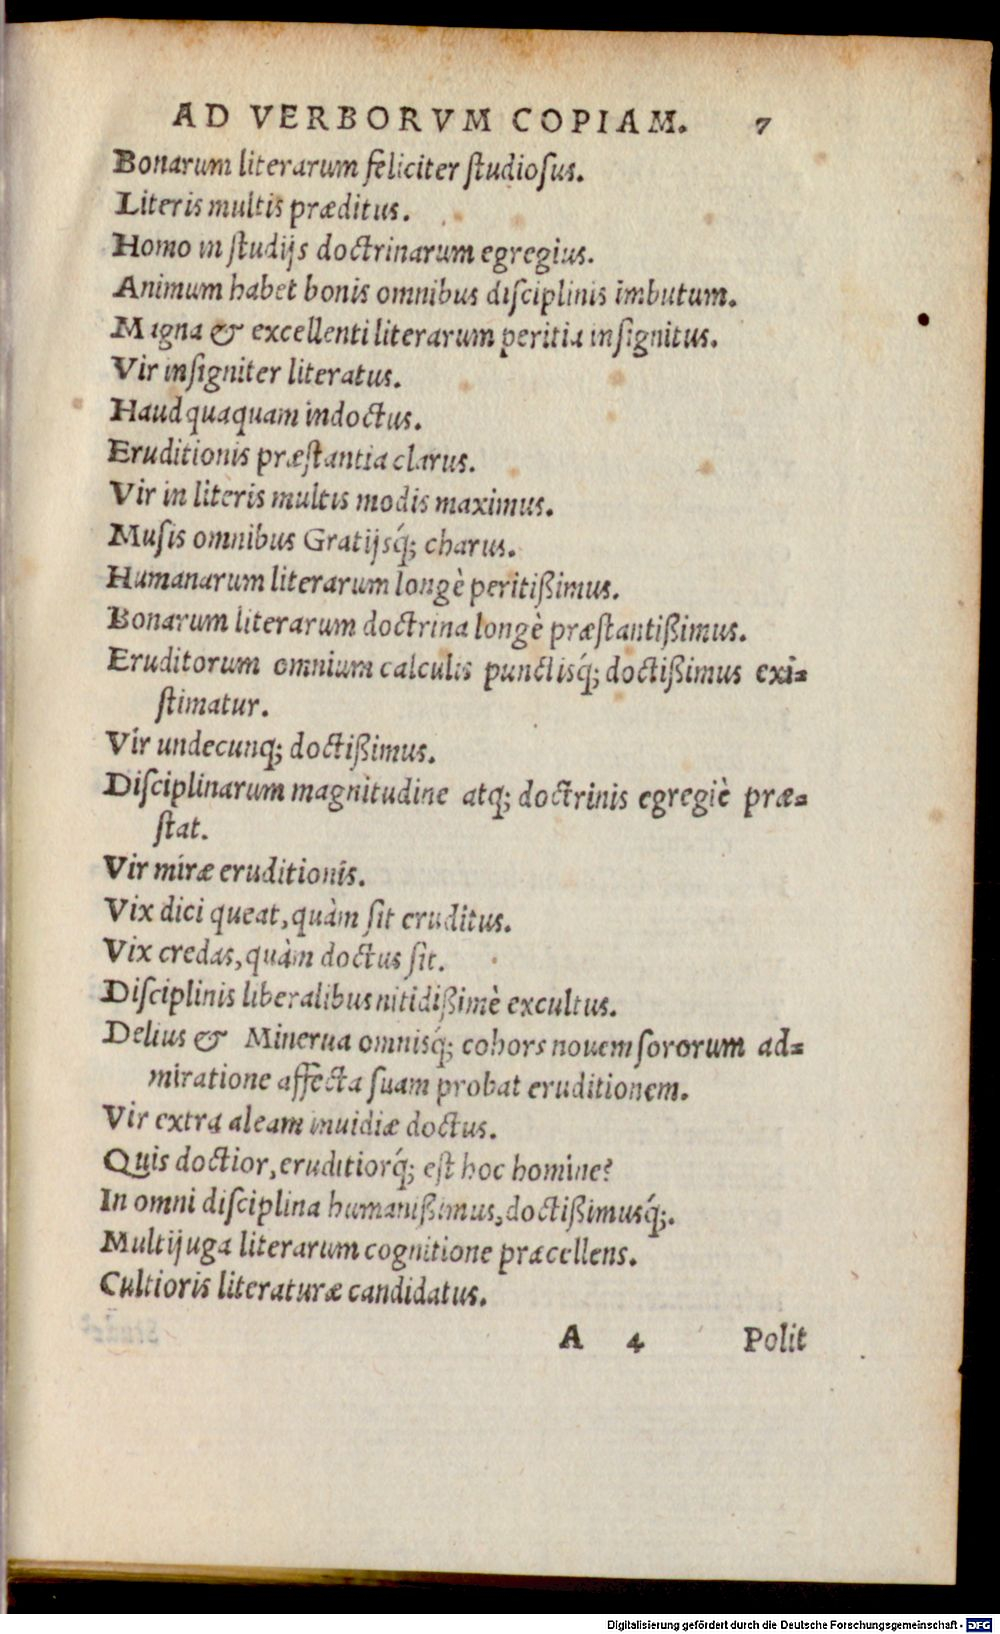 AD VERBORVM COPIAM. 7
Bonarum literarum feliciter ſtudioſus.
Literis multis præditus.
Homo in ſtudijs doctrinarum egregius.
Animum habet bonis omnibus diſciplinis imbutum.
Magna & excellenti literarum peritia inſignitus.
Vir inſigniter literatus.
Haud quaquam indoctus.
Eruditionis præſtantia clarus.
Vir in literis multis modis maximus.
Muſis omnibus Gratijsq́; charus.
Humanarum literarum longè peritißimus.
Bonarum literarum doctrina longè præſtantißimus.
Eruditorum omnium calculis punctisq́; doctißimus exi-
ſtimatur.
Vir undecunq; doctißimus.
Diſciplinarum magnitudine atq; doctrinis egregiè præ-
ſtat.
Vir miræ eruditionis.
Vix dici queat, quàm ſit eruditus.
Vix credas, quàm doctus ſit.
Diſciplinis liberalibus nitidißimè excultus.
Delius & Minerua omnisq́; cohors nouem ſororum ad-
miratione affecta ſuam probat eruditionem.
Vir extra aleam inuidiæ doctus.
Quis doctior, eruditiorq́; eſt hoc homine?
In omni diſciplina humanißimus, doctißimusq́;.
Multijuga literarum cognitione præcellens.
Cultioris literaturæ candidatus.
A 4 Polit
Digitalisierung gefördert durch die Deutsche Forschungsgemeinschaft - DFG